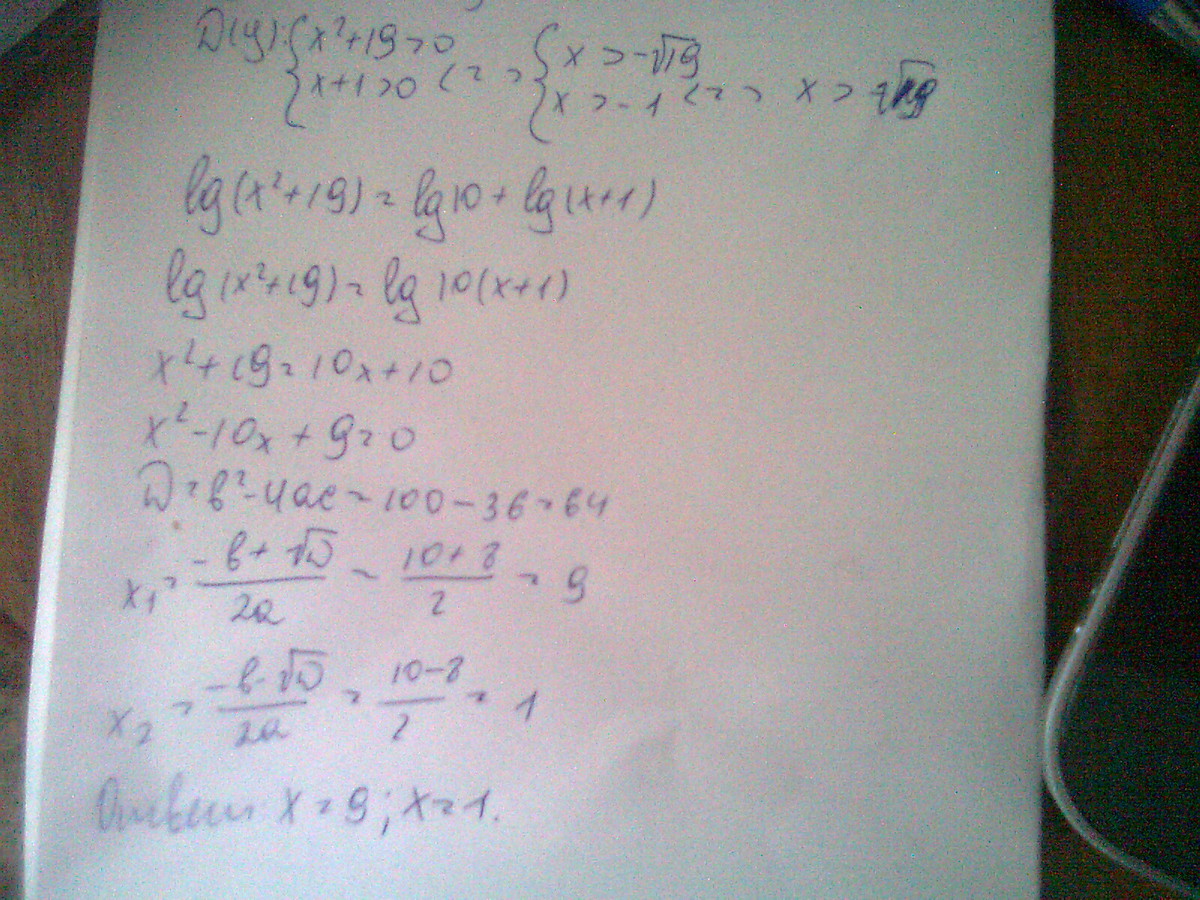 D(y): { x²+19>0 <=> { x>-√19
{ x+1>0 { x>-1 <=> x>
lg(x²+19)=lg10+lg(x+1)
lg(x²+19)=lg10(x+1)
x²+19=10x+10
x²-10x+9=0
D=b²-4ac=100-36=64
x₁=(-b+√D)/2a=(10+8)/2=9
x₂=(-b-√D)/2a=(10-8)/2=1
Ответ: x=9; x=1.